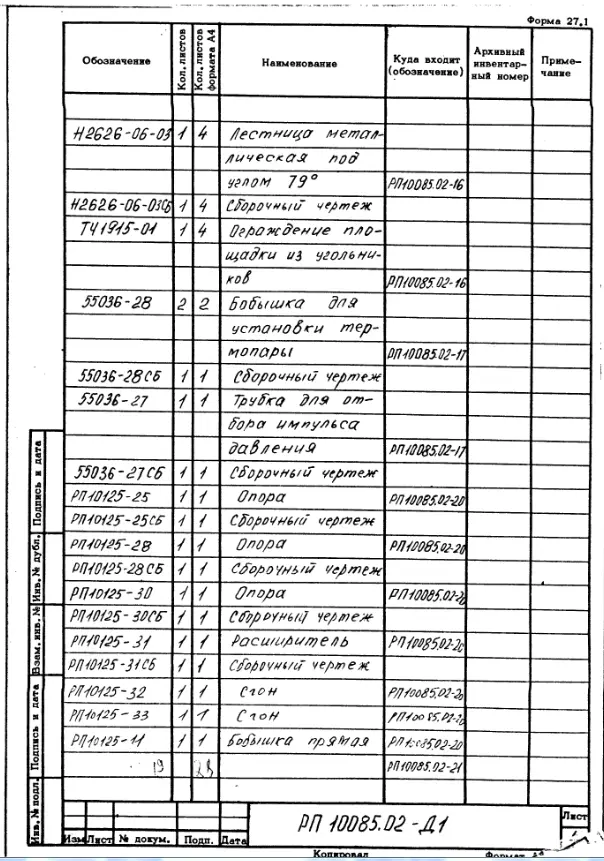 Форма 27.1
Обозначение Кол. листов Кол. листов формата А4 Наименование Куда входит (обозначение) Архивный инвентарный номер Примечание
Н2626-06-03 1 4 Лестница метал-
лическая под
углом 79° РП10085.02-16
Н2626-06-03СБ 1 4 Сборочный чертеж
ТЧ1915-01 1 4 Ограждение пло-
щадки из угольни-
ков РП10085.02-16
55036-28 2 2 Бобышка для
установки тер-
мопары РП10085.02-17
55036-28СБ 1 1 Сборочный чертеж
55036-27 1 1 Трубка для от-
бора импульса
давления РП10085.02-17
55036-27СБ 1 1 Сборочный чертеж
РП10125-25 1 1 Опора РП10085.02-20
РП10125-25СБ 1 1 Сборочный чертеж
РП10125-28 1 1 Опора РП10085.02-20
РП10125-28СБ 1 1 Сборочный чертеж
РП10125-30 1 1 Опора РП10085.02-20
РП10125-30СБ 1 1 Сборочный чертеж
РП10125-31 1 1 Расширитель РП10085.02-20
РП10125-31СБ 1 1 Сборочный чертеж
РП10125-32 1 1 Сгон РП10085.02-20
РП10125-33 1 1 Сгон РП10085.02-20
РП10125-11 1 1 Бобышка прямая РП10085.02-20
19 РП10085.02-21
Подпись и дата
Инв. № дубл.
Взам. инв. №
Подпись и дата
Инв. № подл.
Изм Лист № докум. Подп. Дата
РП 10085.02-Д1
Лист
Копировал Формат А4